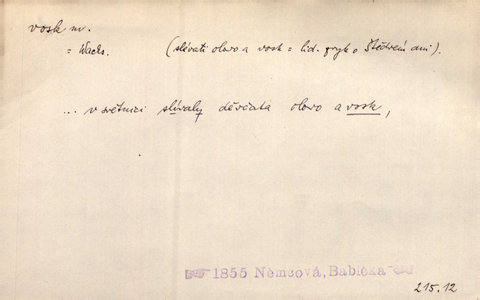 vosk m.
= Wachs. (slévati olovo a vosk = lid. zvyk o Štědrém dni).
... v světnici slívaly děvčata olovo a vosk,
1855 Němcová, Babička
215.12